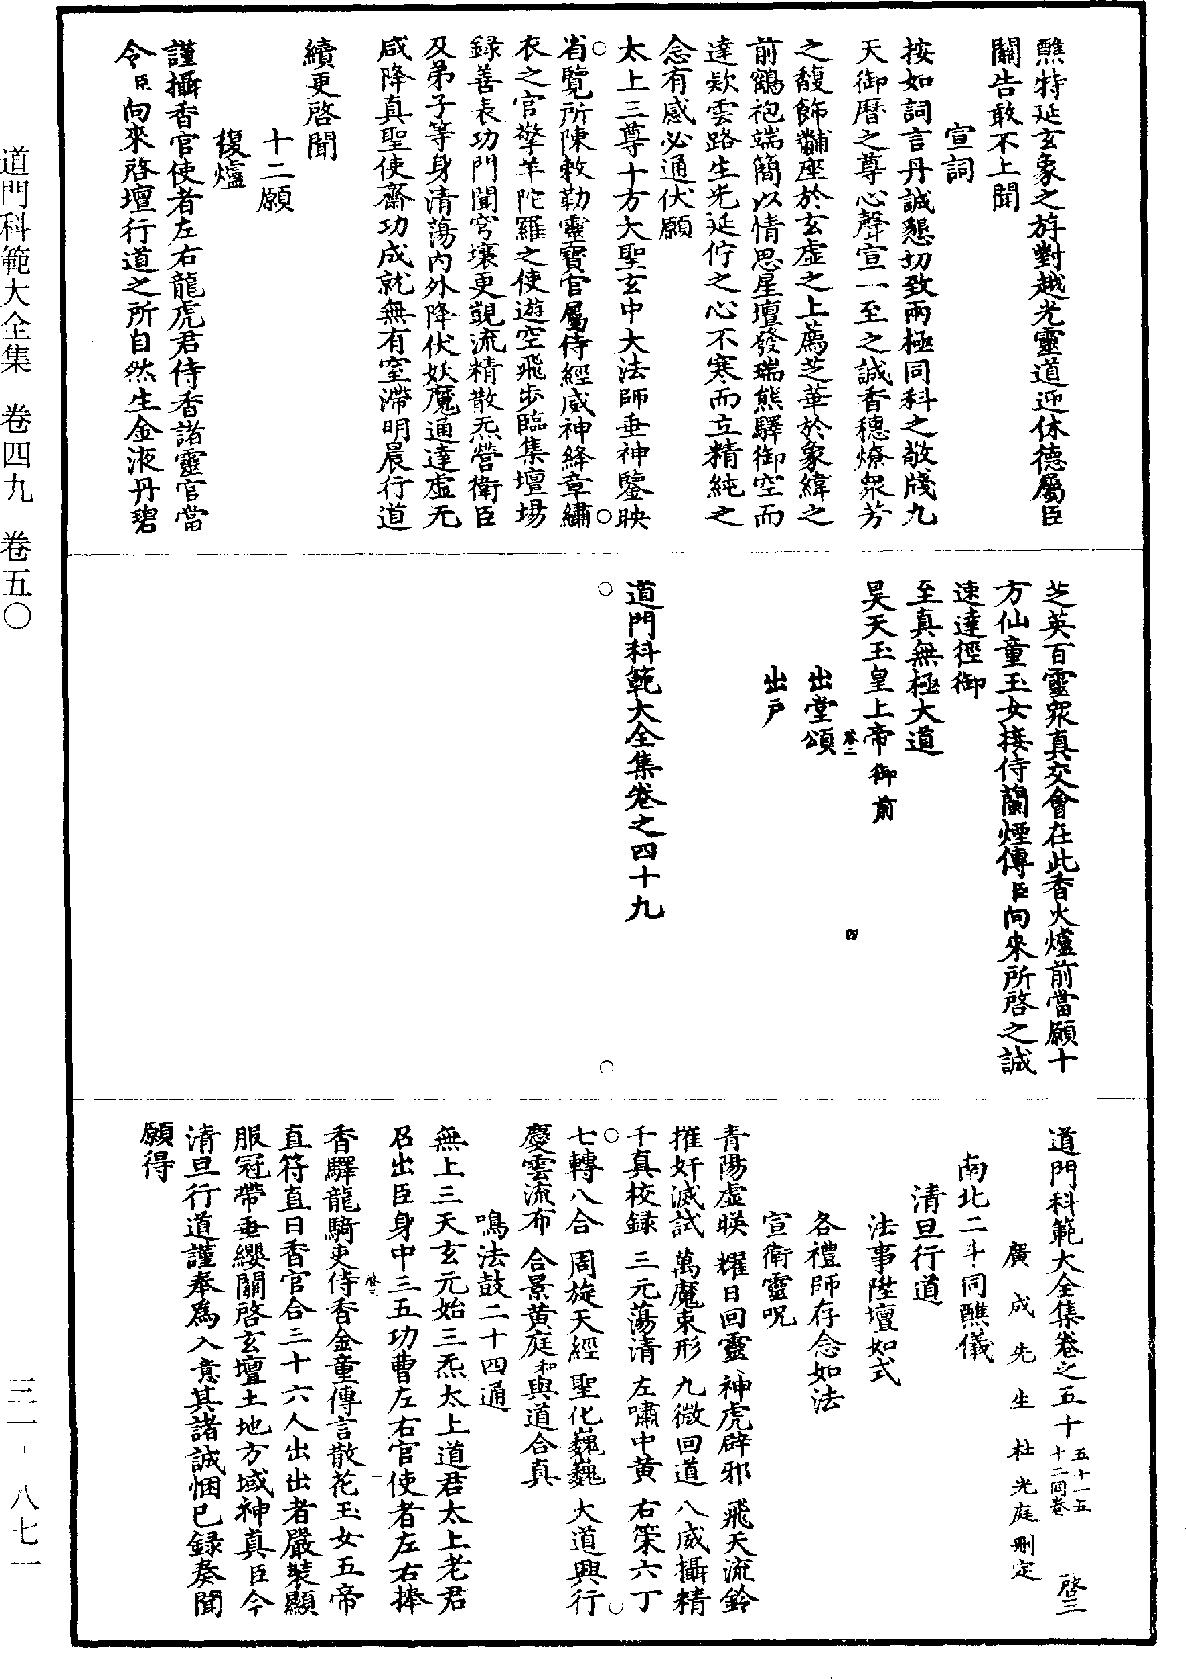 醮特延玄象之斿對越光靈道迎休德屬臣
關告敢不上聞
宣詞
按如詞言丹誠懇切致兩極同科之敬牋九
天御曆之尊心聲宣一至之誠香穗燎衆芳
之馥飾黼座於玄虛之上薦芝華於象緯之
前鶴袍端簡以情思星壇發瑞熊驛御空而
達欵雲路生光延佇之心不寒而立精純之
念有感必通伏願
太上三尊十方大聖玄中大法師垂神鑒映
省覽所陳敕勒靈寶官屬侍經威神絳章繡
衣之官擎羊陀羅之使遊空飛步臨集壇場
錄善表功門聞穹壤更覬流精散炁營衛臣
及弟子等身清蕩內外降伏妖魔通達虛无
咸降真聖使齋功成就無有窒滯明晨行道
續更啓聞
十二願
復爐
謹攝香官使者左右龍虎君侍香諸靈官當
令臣向來啓壇行道之所自然生金液丹碧
芝英百靈衆真交會在此香火爐前當願十
方仙童玉女接侍蘭煙傳臣向來所啓之誠
速達徑御
至真無極大道
昊天玉皇上帝御前
出堂頌
出戶
道門科範大全集卷之四十九
道門科範大全集卷之五十 五十一五十二同卷 啓三
廣成先生杜光庭刪定
南北二斗同醮儀
清旦行道
法事陞壇如式
各禮師存念如法
宣衛靈呪
青陽虛暎 耀日回靈 神虎辟邪 飛天流鈴
摧奸滅試 萬魔束形 九微回道 八威攝精
千真校錄 三元蕩清 左嘯中黃 右策六丁
七轉八合 周旋天經 聖化巍巍 大道興行
慶雲流布 合景黃庭和與道合真
鳴法鼓二十四通
無上三天玄元始三炁太上道君太上老君
召出臣身中三五功曹左右官使者左右捧
香驛龍騎吏侍香金童傳言散花玉女五帝
直符直日香官合三十六人出出者嚴裝顯
服冠帶垂纓關啓玄壇土地方域神真臣今
清旦行道謹奉為入意其諸誠悃已錄奏聞
願得
道門科範大全集 卷四九 卷五〇
三一-八七一